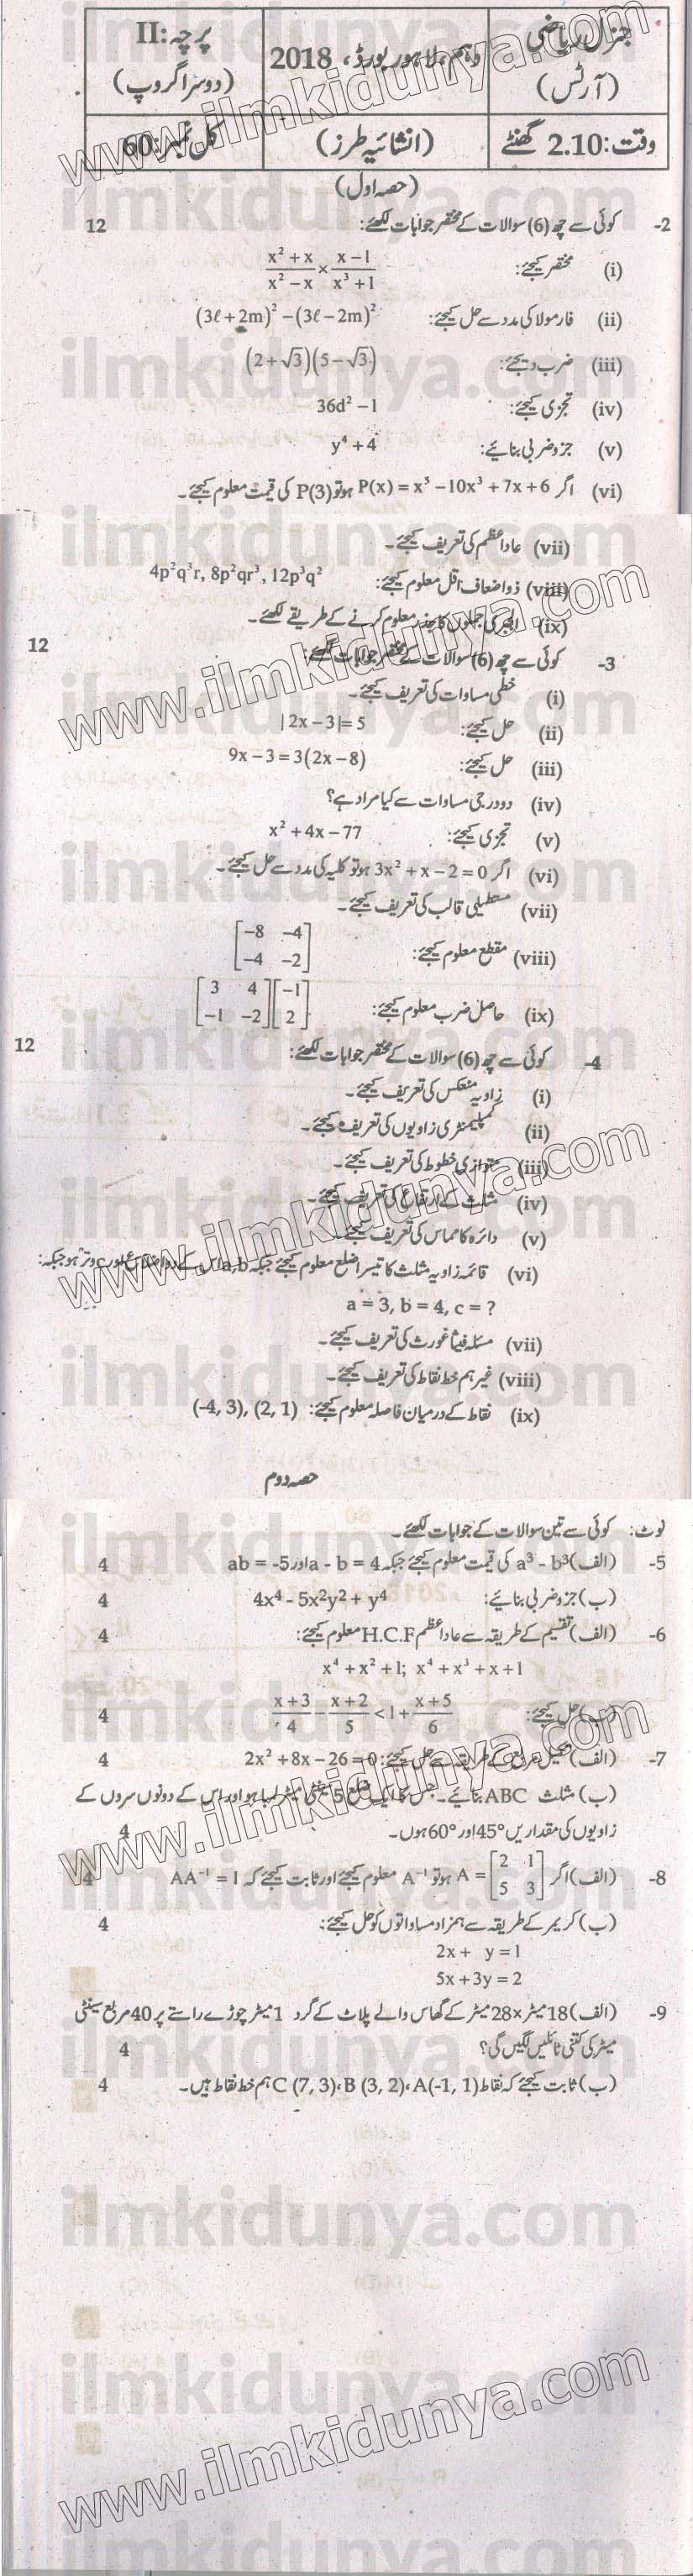 جنرل ریاضی (آرٹس) دہم، لاہور بورڈ، 2018 پرچہ: II (دوسرا گروپ)
وقت: 2.10 گھنٹے (انشائیہ طرز) کل نمبر: 60
(حصہ اول)
2- کوئی سے چھ (6) سوالات کے مختصر جوابات لکھئے: 12
(i) مختصر کیجئے: (x² + x)/(x² − x) × (x − 1)/(x³ + 1)
(ii) فارمولا کی مدد سے حل کیجئے: (3ℓ + 2m)² − (3ℓ − 2m)²
(iii) ضرب دیجئے: (2 + √3)(5 − √3)
(iv) تجزی کیجئے: 36d² − 1
(v) جزو ضربی بنائیے: y⁴ + 4
(vi) اگر P(x) = x³ − 10x³ + 7x + 6 ہو تو P(3) کی قیمت معلوم کیجئے۔
(vii) عاد اعظم کی تعریف کیجئے۔
(viii) ذو اضعاف اقل معلوم کیجئے: 4p²q³r, 8p²qr³, 12p³q²
(ix) الجبری جملوں کا جذر معلوم کرنے کے طریقے لکھئے۔
3- کوئی سے چھ (6) سوالات کے مختصر جوابات لکھئے: 12
(i) خطی مساوات کی تعریف کیجئے۔
(ii) حل کیجئے: |2x − 3| = 5
(iii) حل کیجئے: 9x − 3 = 3(2x − 8)
(iv) دو درجی مساوات سے کیا مراد ہے؟
(v) تجزی کیجئے: x² + 4x − 77
(vi) اگر 3x² + x − 2 = 0 ہو تو کلیہ کی مدد سے حل کیجئے۔
(vii) مستطیلی قالب کی تعریف کیجئے۔
(viii) مقطع معلوم کیجئے: [−8 −4; −4 −2]
(ix) حاصل ضرب معلوم کیجئے: [3 4; −1 −2][−1; 2]
4- کوئی سے چھ (6) سوالات کے مختصر جوابات لکھئے: 12
(i) زاویہ منعکس کی تعریف کیجئے۔
(ii) کمپلیمنٹری زاویوں کی تعریف کیجئے۔
(iii) متوازی خطوط کی تعریف کیجئے۔
(iv) مثلث کے ارتفاع کی تعریف کیجئے۔
(v) دائرہ کا مماس کی تعریف کیجئے۔
(vi) قائمہ زاویہ مثلث کا تیسرا ضلع معلوم کیجئے جبکہ a,b اس کے دو اضلاع اور c وتر ہو جبکہ:
a = 3, b = 4, c = ?
(vii) مسئلہ فیثاغورث کی تعریف کیجئے۔
(viii) غیر ہم خط نقاط کی تعریف کیجئے۔
(ix) نقاط کے درمیان فاصلہ معلوم کیجئے: (-4, 3), (2, 1)
حصہ دوم
نوٹ: کوئی سے تین سوالات کے جوابات لکھئے۔
5- (الف) a³ - b³ کی قیمت معلوم کیجئے جبکہ a - b = 4 اور ab = -5 4
(ب) جزو ضربی بنائیے: 4x⁴ - 5x²y² + y⁴ 4
6- (الف) تقسیم کے طریقہ سے عاد اعظم H.C.F معلوم کیجئے: 4
x⁴ + x² + 1; x⁴ + x³ + x + 1
(ب) حل کیجئے: (x + 3)/4 − (x + 2)/5 < 1 + (x + 5)/6 4
7- (الف) تکمیل مربع کے طریقہ سے حل کیجئے: 2x² + 8x − 26 = 0 4
(ب) مثلث ABC بنائیے۔ جس کا ایک ضلع 5 سینٹی میٹر لمبا ہو اور اس کے دونوں سروں کے
زاویوں کی مقداریں 45° اور 60° ہوں۔ 4
8- (الف) اگر A = [2 1; 5 3] ہو تو A⁻¹ معلوم کیجئے اور ثابت کیجئے کہ AA⁻¹ = I 4
(ب) کریمر کے طریقہ سے ہمزاد مساواتوں کو حل کیجئے: 4
2x + y = 1
5x + 3y = 2
9- (الف) 18 میٹر × 28 میٹر کے گھاس والے پلاٹ کے گرد 1 میٹر چوڑے راستے پر 40 مربع سینٹی
میٹر کی کتنی ٹائلیں لگیں گی؟ 4
(ب) ثابت کیجئے کہ نقاط A(-1, 1)، B (3, 2)، C (7, 3) ہم خط نقاط ہیں۔ 4
www.ilmkidunya.com
ilmkidunya.com